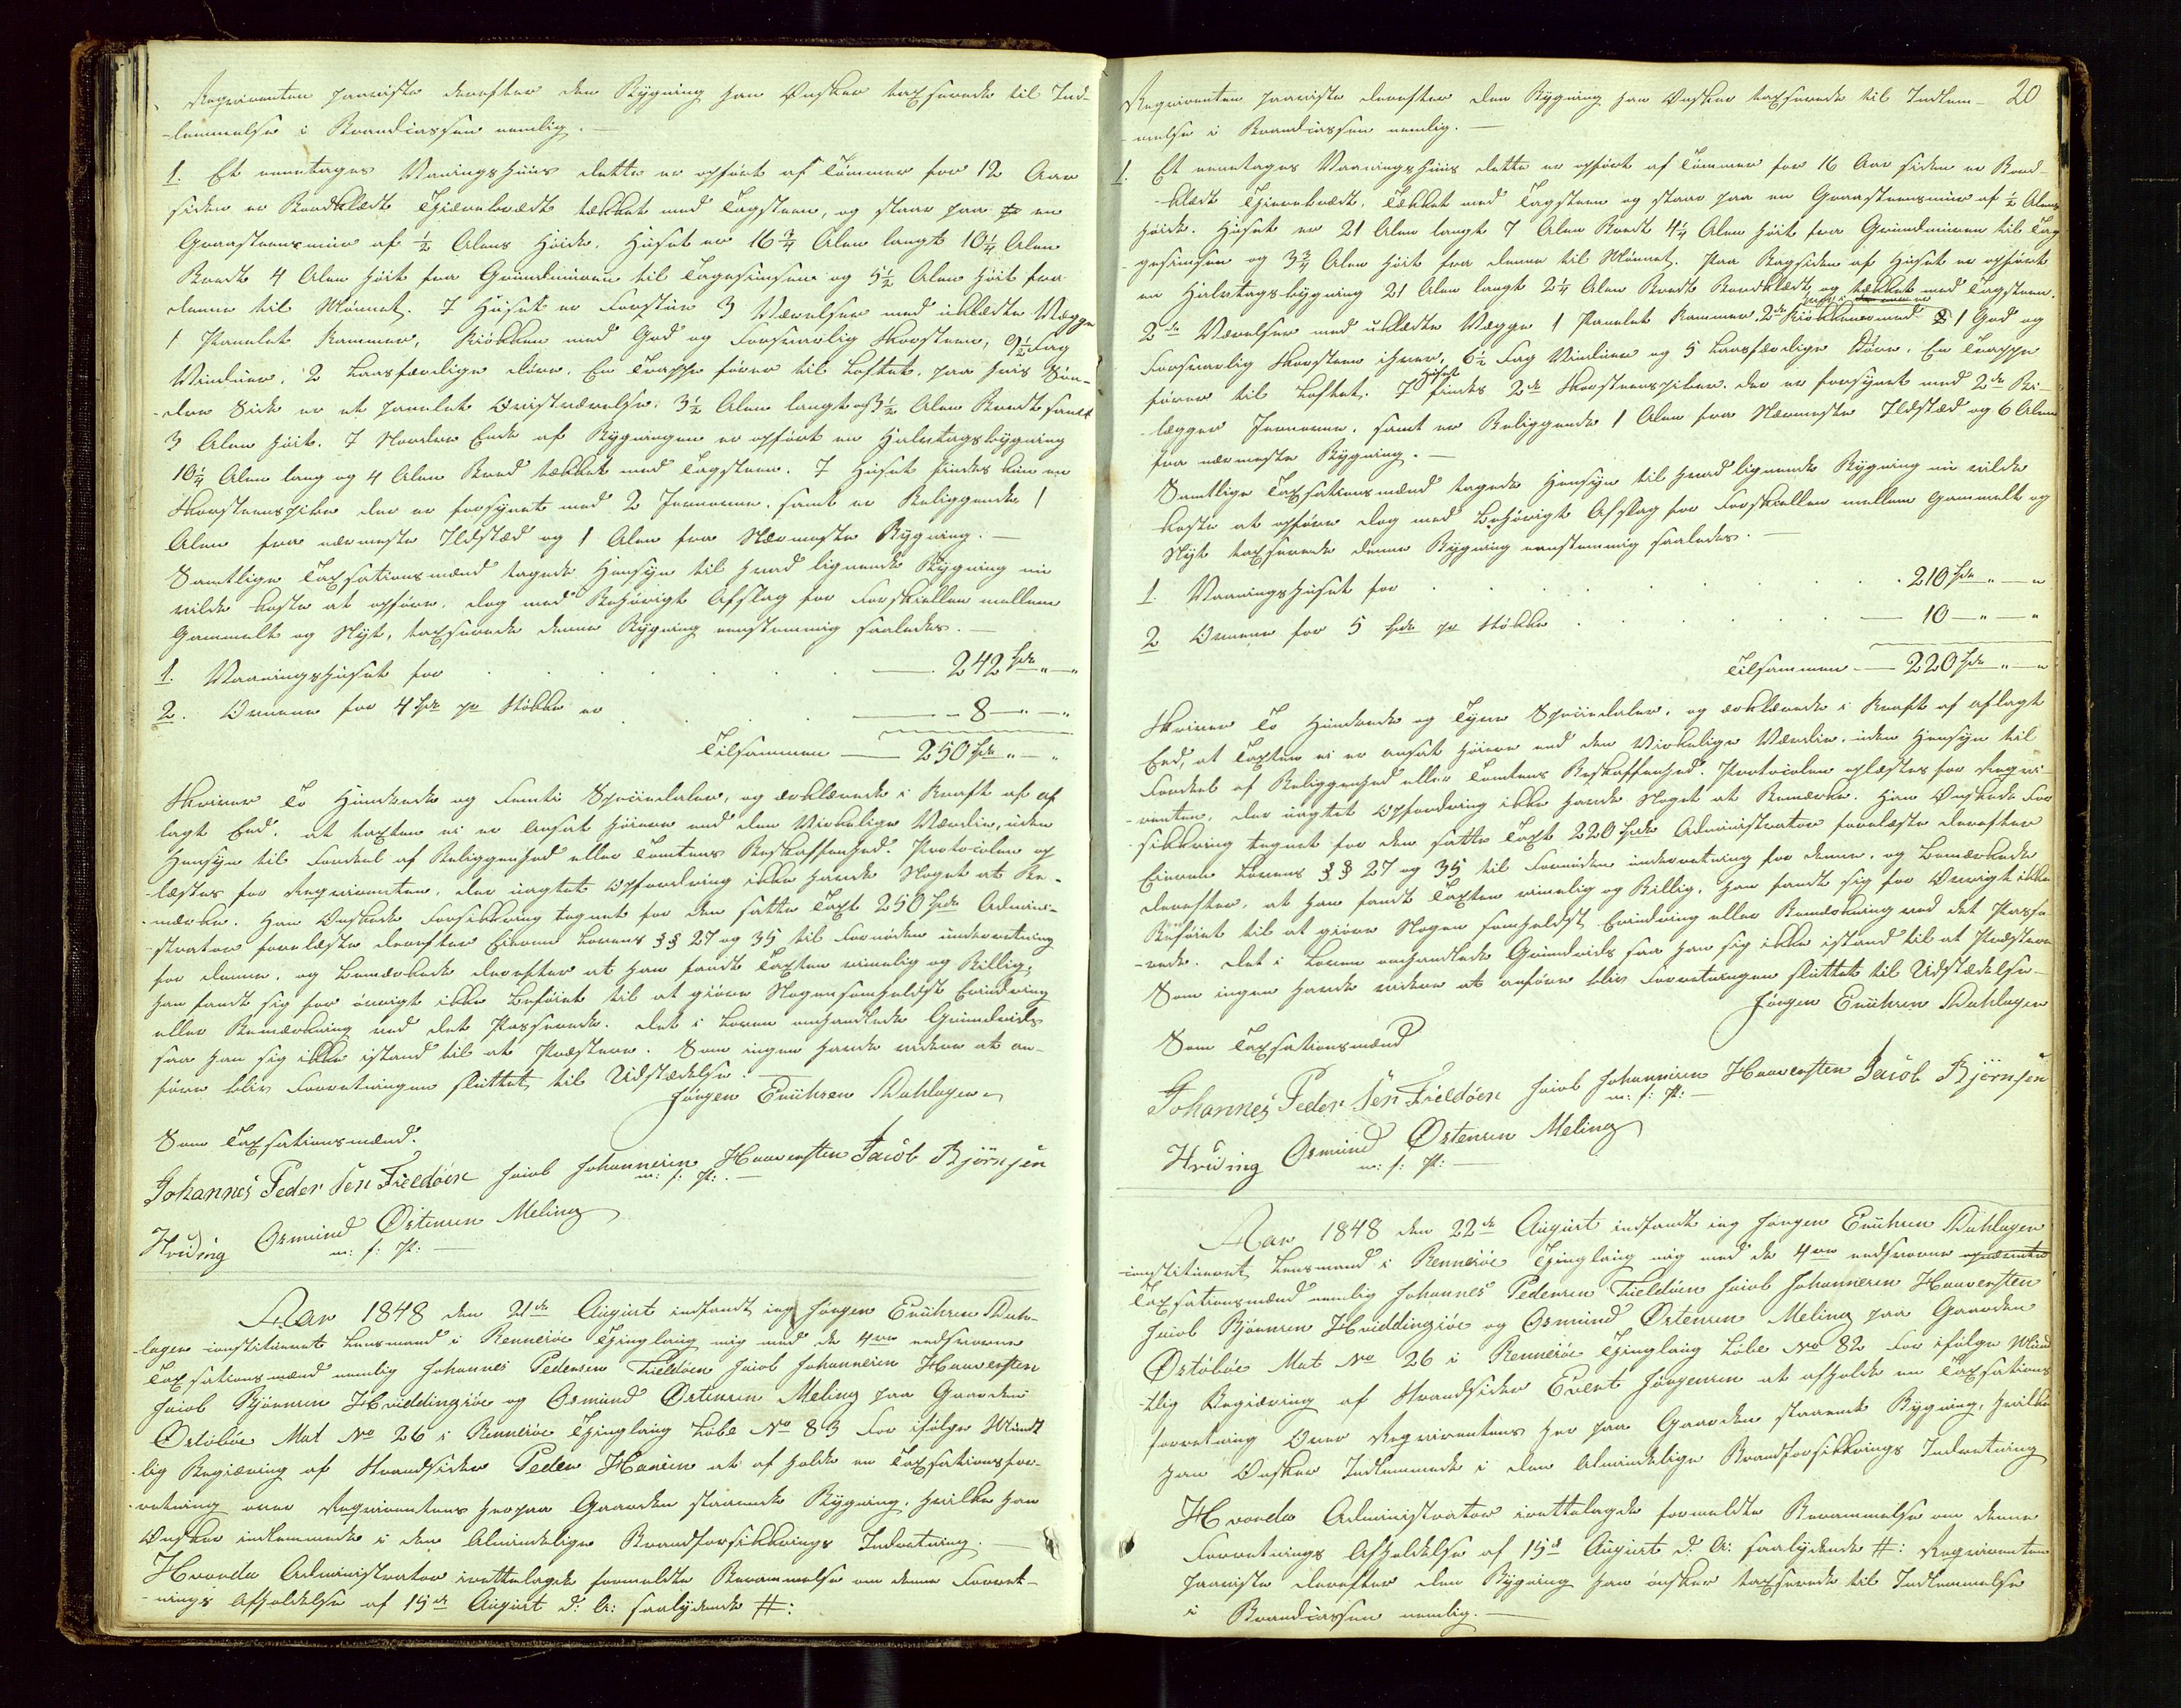 Reqvirenten paaviste derefter den Bygning han Ønsker taxserede til Ind-
-lemmelse i Brandcassen nemlig. —
1. Et eenetages Vaaningshuus dette er opført af Tømmer for 12 Aar
siden er Bordklædt Tjærebrædt tækket med Tagsteen, og staar paa en
Graasteensmuur af ½ Alens Høide. Huset er 16¾ Alen langt 10¼ Alen
Bredt 4 Alen høit fra Grundmuren til Tagesimsen og 5½ Alen høit fra
denne til Mønnet. I Huset er Forstue 3 Værelser med uklædte Vægge
1 Panelet Kammer, Kiøkken med God og Forsvarlig Skorsteen, 9½ Fag
Vinduer, 2 Laasfærdige døre. En Trappe fører til Loftet, paa hvis Søn-
-dre Side er et panelet Qvistværelse. 3½ Alen langt og 3½ Alen Bredt samt
3 Alen høit. I Nordre Ende af Bygningen er opført en Halvtagsbygning
10¼ Alen lang og 4 Alen Bred tækket med Tagsteen. I Huset findes kun en
Skorsteenspibe der er forsynet med 2 Jernovne, samt er Beliggende 1
Alen fra nærmeste Ildsted og 1 Alen fra Nærmeste Bygning. —
Samtlige Taxsationsmænd tagede Hensyn til hvad lignende Bygning nu
vilde koste at opføre, dog med Behørigt Afslag for Forskiellen mellem
Gammelt og Nyt, taxserede denne Bygning eenstemmig saaledes. —
1. Vaaningshuset for . . . . — 242 Spd „ — „
2. Ovnene for 4 Spd pr Stökke er . . . — 8 — „ — „
Tilsammen — 250 Spd „ — „
Skriver To Hundrede og Femti Speciedaler, og erklærede i Kraft af af
lagt Eed, at taxten ei er Ansat høiere end den Virkelige Værdie, uden
Hensyn til Fordeel af Beliggenhed eller Tomtens Beskaffenhed. Protocolen op
-læstes for Reqvirenten, der uagtet Opfordring ikke havde Noget at Be-
-mærke. Han Ønskede Forsikkring tegnet for den satte Taxt 250 Spd Admini-
-strator forelæste derefter Eieren Lovens §§ 27 og 35 til Fornøden underretning
for denne, og Bemærkede derefter at han fandt Taxten rimelig og Billig,
han fandt sig for øvrigt ikke Beføiet til at giøre Nogensomheldst Erindring
eller Bemærkning ved det Passerede. Det i Loven omhandlede Grundrids
saa han sig ikke istand til at Præstere. Som ingen havde videre at an-
føre blev Forretningen sluttet til Udstædelse. —
Jörgen Enühsen Dahlagen
Som Taxsationsmænd.
Johannes Peder Sen Fieldöen Jacob Johannesen Haaversten Jacob Björnsen
m: f: P: —
Hviding Osmund Østensen Meling
m: f: P: —
Aar 1848 den 21de August indfandt ieg Jörgen Enühsen Dah-
-lagen constitueret Lensmand i Rennesöe Tinglaug mig med de 4re eedsvorne
Taxsationsmænd nemlig Johannes Pedersen Fieldöen Jacob Johannesen Haaversten
Jacob Björnsen Hviddingsöe og Osmund Östensen Meling paa Gaarden
Östöböe Mat No 26 i Rennesöe Tinglaug Löbe No 83 For ifølge Mundt
-lig Begiæring af Strandsidder Peder Hansen at afholde en Taxsationsfor-
-retning over Reqvirentens her paa Gaarden staaende Bygning, hvilke han
Ønsker indlemmede i den Almindelige Brandforsikkrings Indretning. —
Hvorda Administrator irettelagde formeldte Berammelse om denne Forret-
-nings Afholdelse af 15de August d: A: saalydende #:
20
Reqvirenten paaviste derefter den Bygning han Ønsker taxserede til Indlem-
-melse i Brandcassen nemlig. —
1. Et eenetages Vaaningshuus dette er opført af Tømmer for 16 Aar siden er Bord-
-klædt Tjærebrædt, Tækket med Tagsteen og staar paa en Graasteensmuur af ½ Alens
Høide. Huset er 21 Alen langt 7 Alen Bredt 4¼ Alen høit fra Grundmuren til Tag
gesimsen og 3¾ Alen høit fra denne til Mønnet. Paa Bagsiden af Huset er opført
en Halvtagsbygning 21 Alen langt 2¼ Alen Bredt Bordklædt og tækket med Tagsteen.
2de Værelser med uklædte Vægge 1 Panelet Kammer. 2de Kiøkkener med 1 God og
Forsvarlig Skorsteen ihver, 6½ Fag Vinduer og 5 Laasfærdige Døre. En Trappe
fører til Loftet. I Huset findes 2de Skorsteenspiber. Der er forsynet med 2de Bi-
-lægger Jernovne, samt er Beliggende 1 Alen fra Nærmeste Ildstæd og 6 Alen
fra nærmeste Bygning. —
Samtlige Taxsationsmænd tagede Hensyn til hvad lignende Bygning nu vilde
koste at opføre dog med Behørigt Afslag for Forskiellen mellem Gammelt og
Nyt taxserede denne Bygning eenstemmig saaledes. —
1. Vaaningshuset for . . . . 210 Spd „ — „
2 Ovnene for 5 Spd pr Stökke . . . — 10 — „ — „
Tilsammen — 220 Spd „ — „
Skriver To Hundrede og Tyve Speciedaler, og erklærede i Kraft af aflagt
Eed, at Taxten ei er ansat høiere end den Virkelige Værdie, uden Hensyn til
Fordeel af Beliggenhed eller Tomtens Beskaffenhed. Protocolen oplæstes for Reqvi-
-renten, der uagtet Opfordring ikke havde Noget at Bemærke. Han Ønskede For
sikkring tegnet for den satte Taxt 220 Spd Administrator forelæste derefter
Eieren Lovens §§ 27 og 35 til Fornøden underretning for denne, og Bemærkede
derefter, at han fandt Taxten rimelig og Billig, han fandt sig for Øvrigt ikke
Beføiet til at giøre Nogen somheldst Erindring eller Bemærkning ved det Passe-
-rede. Det i Loven omhandlede Grundrids saa han sig ikke istand til at Præstere
Som ingen havde videre at anføre blev Forretningen sluttet til Udstædelse —
Jörgen Enühsen Dahlagen
Som Taxsationsmænd
Johannes Peder Sen Fieldöen Jacob Johannesen Haaversten Jacob Björnsen
m: f: P: —
Hviding Osmund Östensen Meling
m: f: P: —
Aar 1848 den 22de August indfandt ieg Jörgen Enühsen Dahlagen
constitueret Lensmand i Rennesöe Tinglaug mig med de 4re eedsvorne opnævnte
Taxsationsmænd nemlig Johannes Pedersen Fieldöen Jacob Johannesen Haaversten
Jacob Björnsen Hviddingsöe og Osmund Östensen Meling paa Gaarden
Östöböe Mat No 26 i Rennesöe Tinglaug Löbe No 82 For ifølge Mund
-tlig Begiæring af Strandsidder Evert Jörgensen at afholde en Taxsations
forretning Over Reqvirentens her paa Gaarden staaende Bygning, hvilke
han Ønsker Indlemmede i den Almindelige Brandforsikkrings Indretning
Hvorda Administrator irettelagde formeldte Berammelse om denne
Forretnings Afholdelse af 15de August d: A: saalydende #: Reqvirenten
paaviste derefter den Bygning han ønsker taxserede til Indlemmelse
i Brandcassen nemlig. —